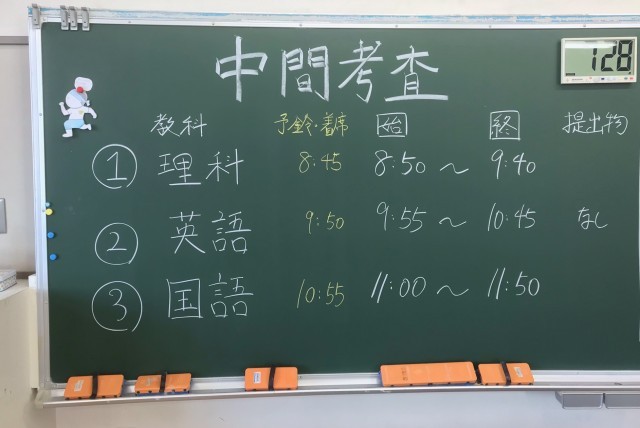 中間考査
128
教科 予鈴・着席 始 終 提出物
① 理科 8:45 8:50 〜 9:40
② 英語 9:50 9:55 〜 10:45 なし
③ 国語 10:55 11:00 〜 11:50